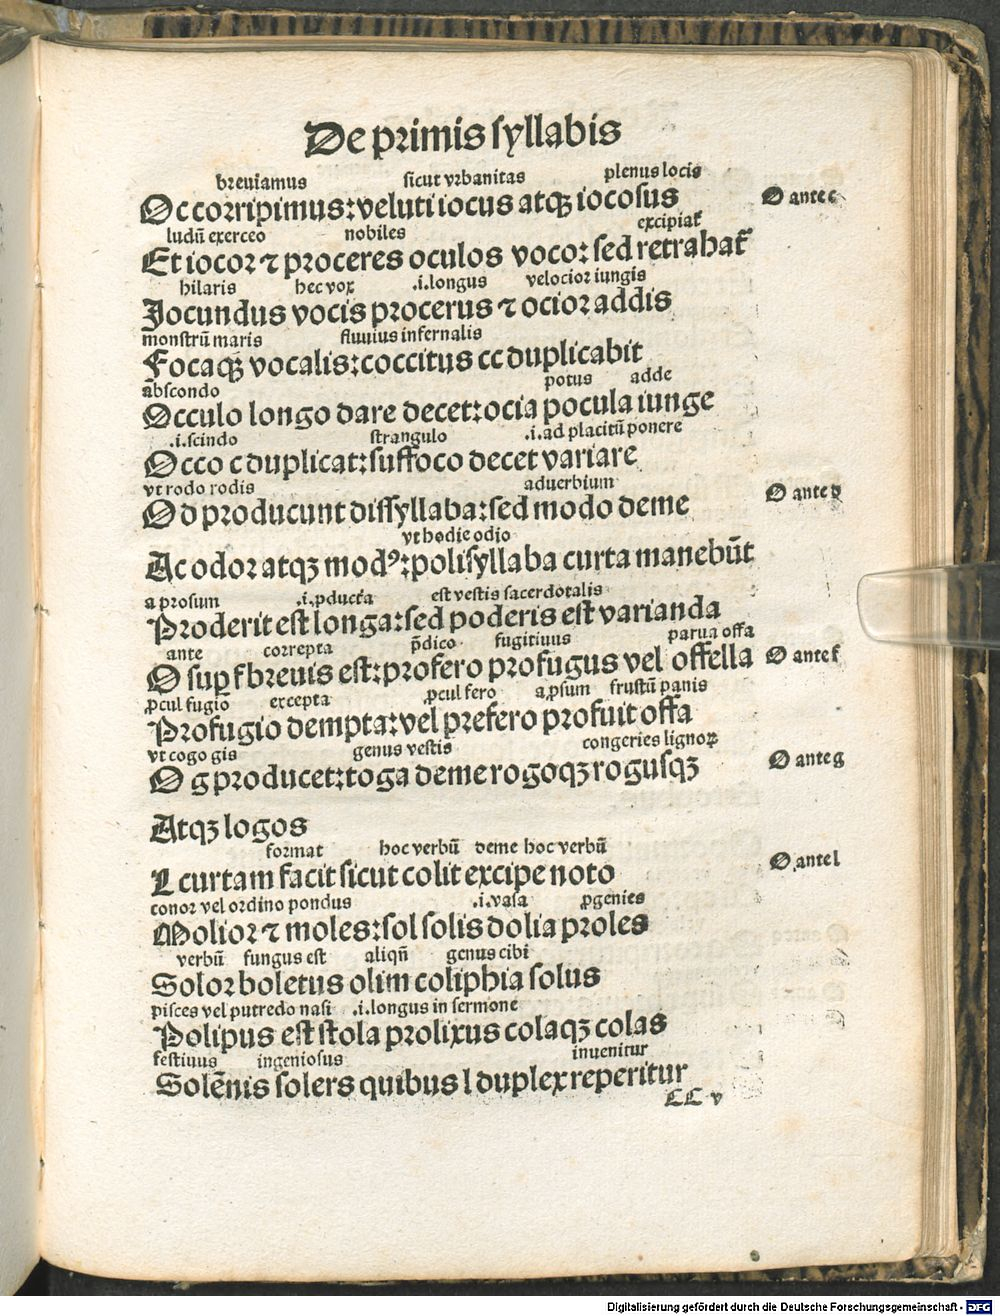 De primis syllabis
breviamus sicut vrbanitas plenus locis
Oc corripimus: veluti iocus atqꝫ iocosus O ante c
ludū exerceo nobiles excipiat̄
Et iocor ⁊ proceres oculos vocor: sed retrahat̄
hilaris hec vox .i.longus velocior iungis
Jocundus vocis procerus ⁊ ocior addis
monstrū maris fluuius infernalis
Focaqꝫ vocalis: coccitus cc duplicabit
abscondo potus adde
Occulo longo dare decet: ocia pocula iunge
.i.scindo strangulo .i.ad placitū ponere
Occo c duplicat: suffoco decet variare
vt rodo rodis aduerbium
Od producunt dissyllaba: sed modo deme O ante d
vt hodie odio
Ac odor atqꝫ modꝰ: polisyllaba curta manebūt
a prosum .i.ꝓducta est vestis sacerdotalis
Proderit est longa: sed poderis est varianda
ante correpta p̄dico fugitiuus parua offa
O suꝑ f breuis est: profero profugus vel offella O ante f
ꝓcul fugio excepta ꝓcul fero a ꝓsum frustū panis
Profugio dempta: vel prefero profuit offa
vt cogo gis genus vestis congeries lignoꝝ
O g producet: toga deme rogoqꝫ rogusqꝫ O ante g
Atqꝫ logos
format hoc verbū deme hoc verbū
L curtam facit sicut colit excipe noto O ante l
conor vel ordino pondus .i.vasa ꝓgenies
Molior ⁊ moles: sol solis dolia proles
verbū fungus est aliqn̄ genus cibi
Solor boletus olim coliphia solus
pisces vel putredo nasi .i.longus in sermone
Polipus est stola prolixus colaqꝫ colas
festiuus ingeniosus inuenitur
Solēnis solers quibus l duplex reperitur
CC v
Digitalisierung gefördert durch die Deutsche Forschungsgemeinschaft - DFG